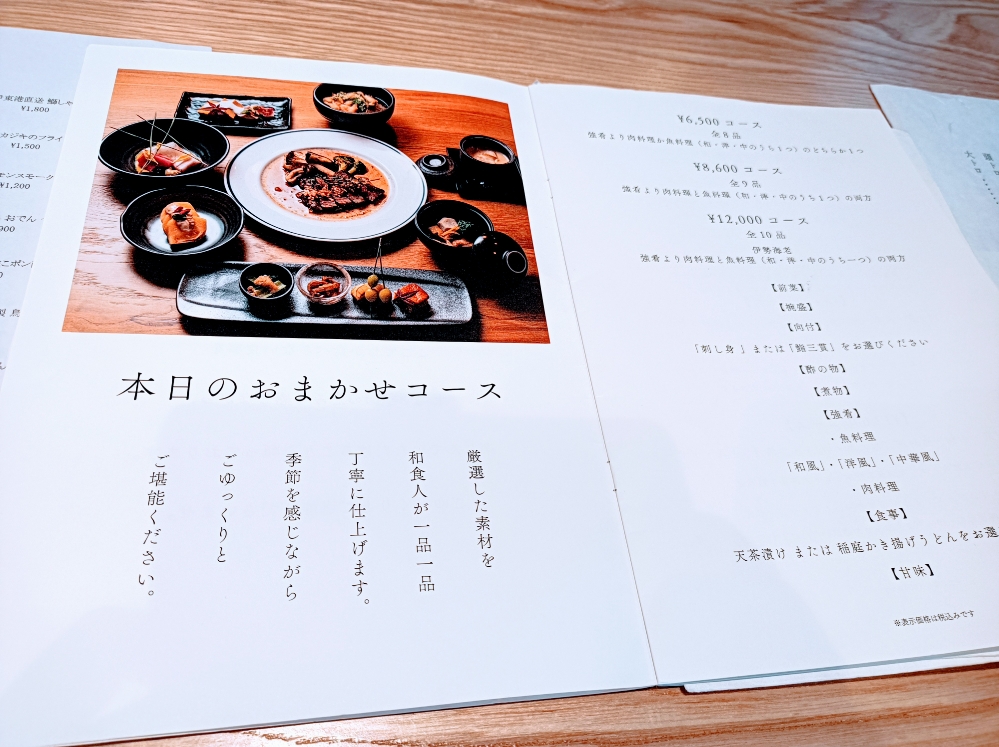 ¥1,800
カジキのフライ
¥1,500
¥1,200
おでん
本日のおまかせコース
厳選した素材を
和食人が一品一品
丁寧に仕上げます。
季節を感じながら
ごゆっくりと
ご堪能ください。
¥6,500 コース
全8品
強肴より肉料理か魚料理(和・洋・中のうち1つ)のどちらか1つ
¥8,600 コース
全9品
強肴より肉料理と魚料理(和・洋・中のうち1つ)の両方
¥12,000 コース
全10品
伊勢海老
強肴より肉料理と魚料理(和・洋・中のうち一つ)の両方
【前菜】
【椀盛】
【向付】
「刺し身」または「鮨三貫」をお選びください
【酢の物】
【煮物】
【強肴】
・魚料理
「和風」・「洋風」・「中華風」
・肉料理
【食事】
天茶漬け または 稲庭かき揚げうどんをお選
【甘味】
※表示価格は税込みです